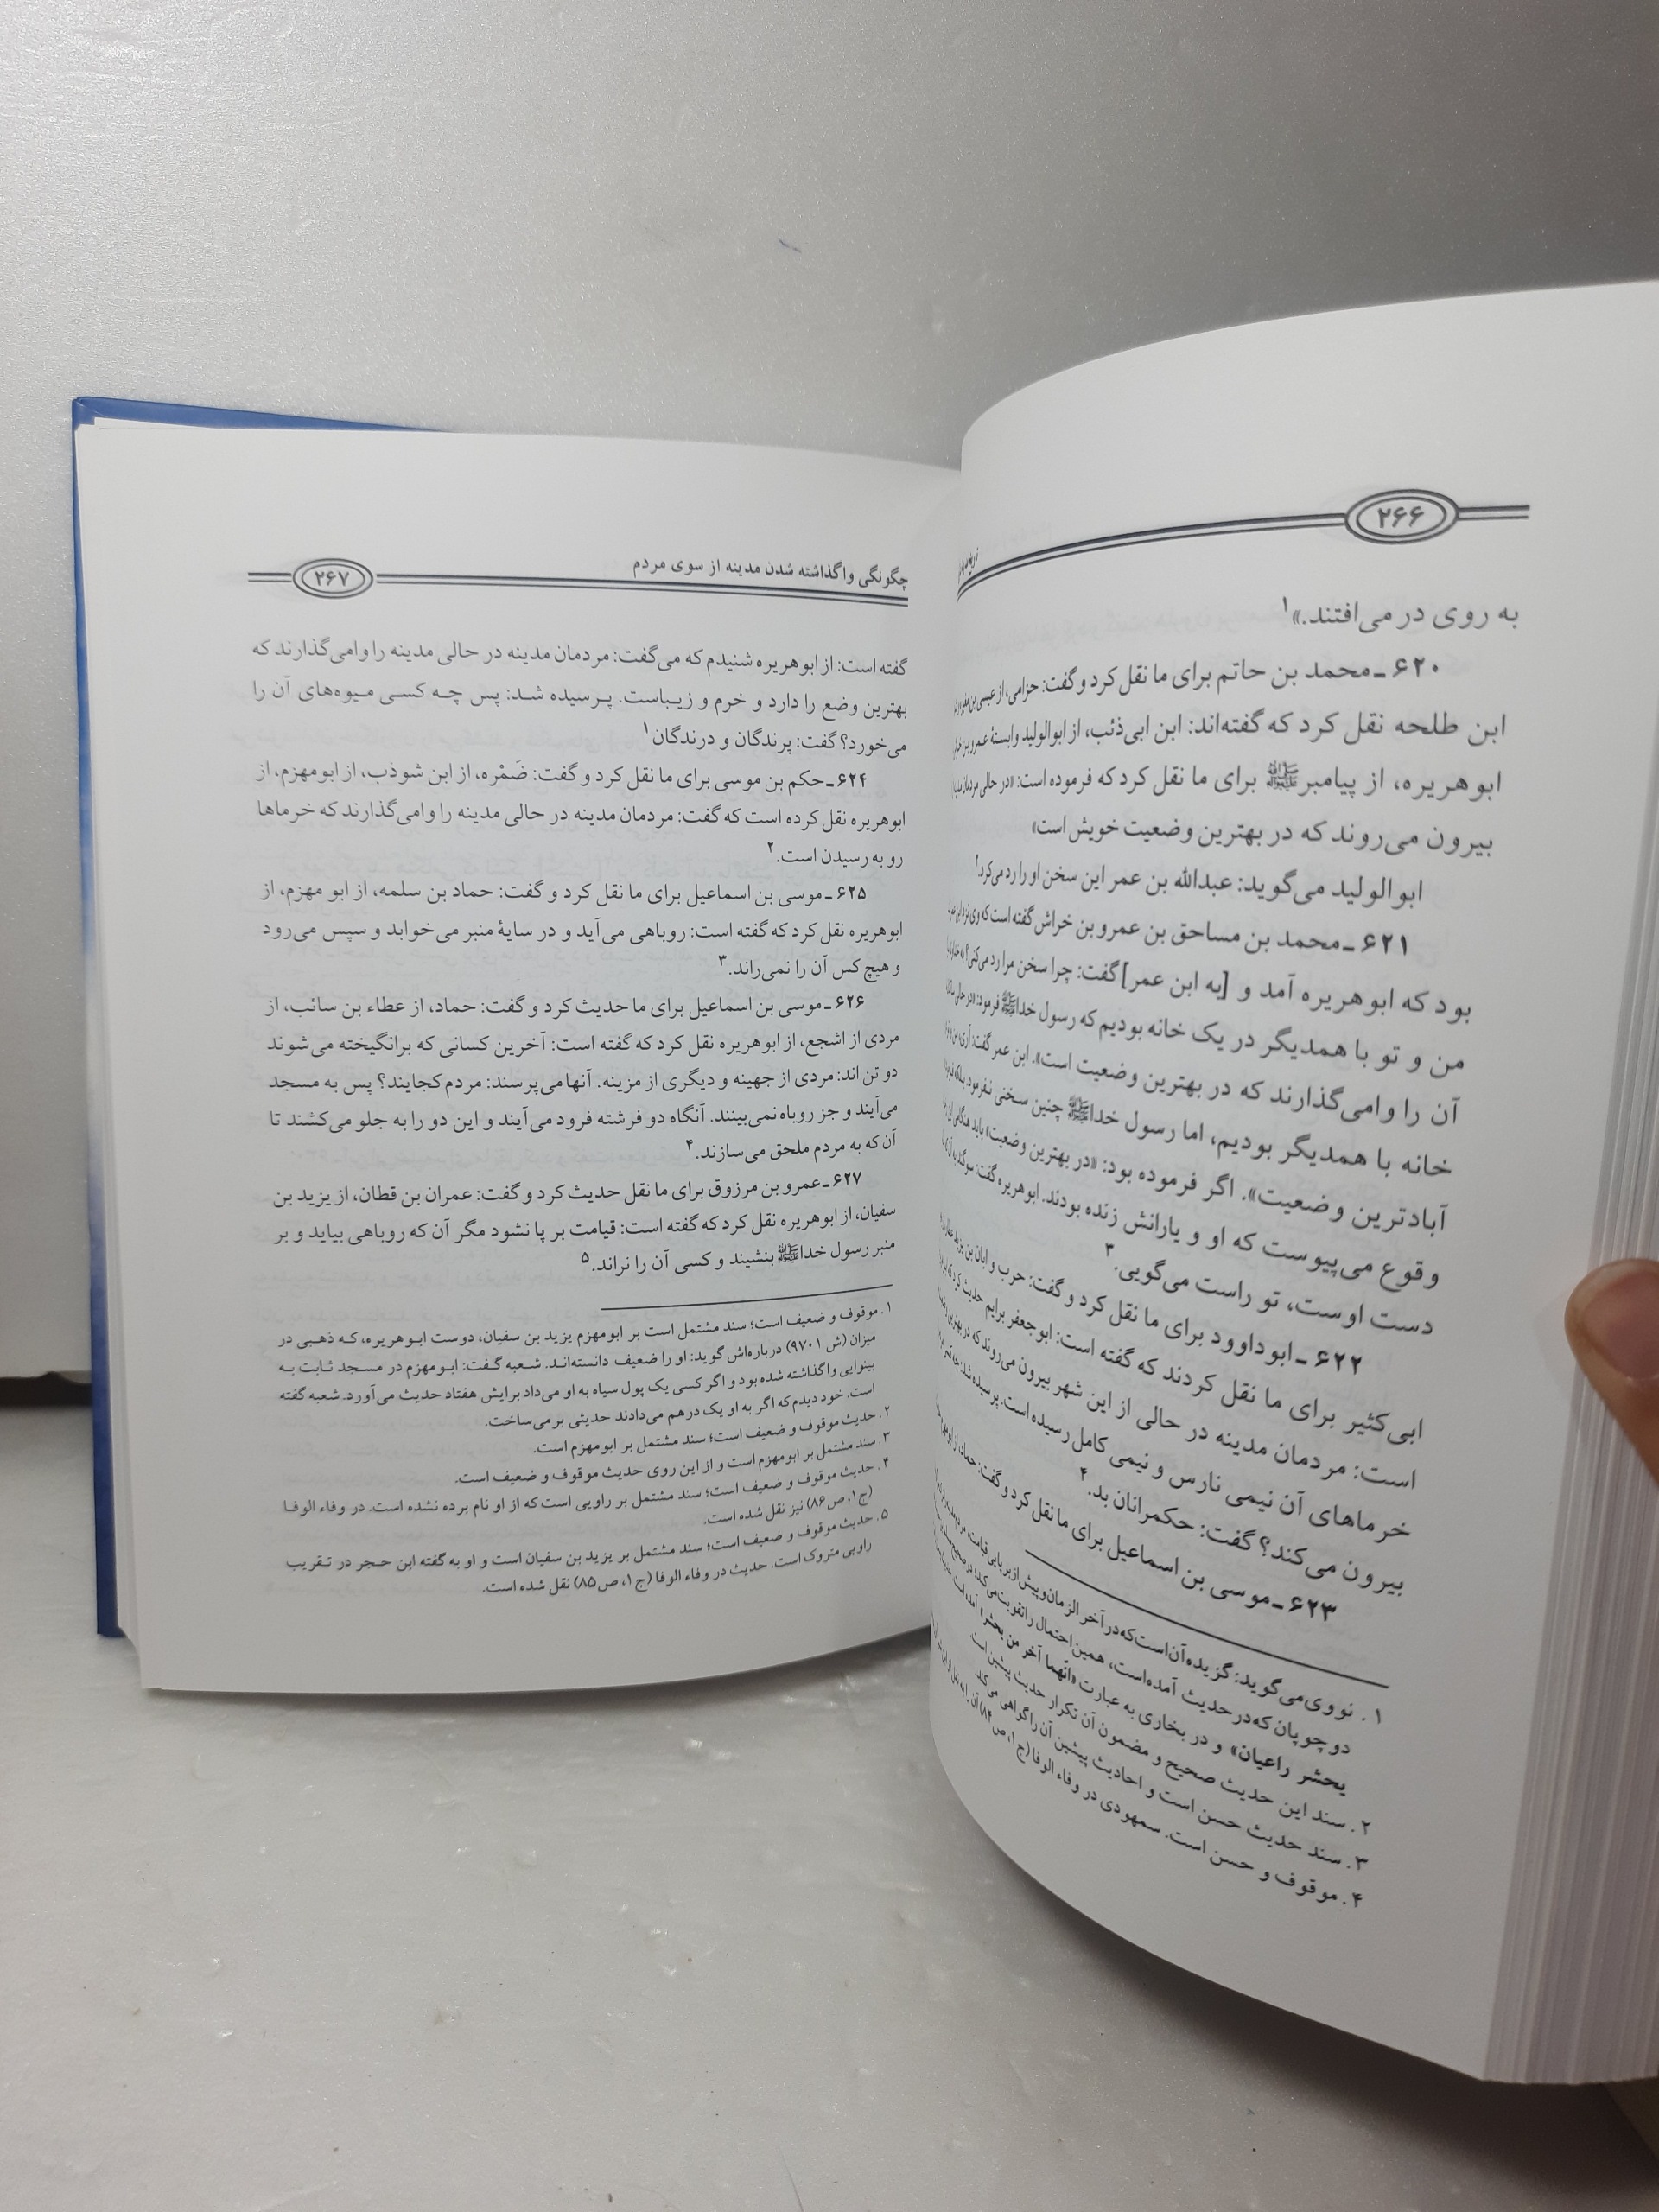 ۲۶۶
به روی در می‌افتند.»۱
۶۲۰ ـ محمد بن حاتم برای ما نقل کرد و گفت: حزامی، از عیسی بن
ابن طلحه نقل کرد که گفته‌اند: ابن ابی‌ذئب، از ابوالولید وابستهٔ عمرو بن
ابوهریره، از پیامبرﷺ برای ما نقل کرد که فرموده است: «در حالی مردمان
بیرون می‌روند که در بهترین وضعیت خویش است»
ابوالولید می‌گوید: عبدالله بن عمر این سخن او را رد می‌کرد.۲
۶۲۱ ـ محمد بن مساحق بن عمرو بن خراش گفته است که وی نزد ابن
بود که ابوهریره آمد و [به ابن عمر] گفت: چرا سخن مرا رد می‌کنی؟ به
من و تو با همدیگر در یک خانه بودیم که رسول خداﷺ فرمود: «در حالی
آن را وامی‌گذارند که در بهترین وضعیت است». ابن عمر گفت: آری، من و
خانه با همدیگر بودیم، اما رسول خداﷺ چنین سخنی نفرمود، بلکه
آبادترین وضعیت». اگر فرموده بود: «در بهترین وضعیت» باید هنگامی
وقوع می‌پیوست که او و یارانش زنده بودند. ابوهریره گفت: سوگند به آن
دست اوست، تو راست می‌گویی.۳
۶۲۲ ـ ابوداوود برای ما نقل کرد و گفت: حرب و ابان بن یزید
ابی‌کثیر برای ما نقل کردند که گفته است: ابوجعفر برایم حدیث کرد که
است: مردمان مدینه در حالی از این شهر بیرون می‌روند که در بهترین
خرماهای آن نیمی نارس و نیمی کامل رسیده است. پرسیده شد: چه کسی
بیرون می‌کند؟ گفت: حکمرانان بد.۴
۶۲۳ ـ موسی بن اسماعیل برای ما نقل کرد و گفت: حماد، از
۱. نووی می‌گوید: گزیده آن است که در آخر الزمان و پیش از برپایی قیامت،
دو چوپان که در حدیث آمده است، همین احتمال را تقویت می‌کند؛ در صحیح
یحشر راعیان» و در بخاری به عبارت «انّهما آخر من یحشر» آمده است.
۲. سند این حدیث صحیح و مضمون آن تکرار حدیث پیشین است.
۳. سند حدیث حسن است و احادیث پیشین آن را گواهی می‌کند.
۴. موقوف و حسن است. سمهودی در وفاء الوفا (ج۱، ص۸۴) آن را به نقل از ابن
چگونگی واگذاشته شدن مدینه از سوی مردم
۲۶۷
گفته است: از ابوهریره شنیدم که می‌گفت: مردمان مدینه در حالی مدینه را وامی‌گذارند که
بهترین وضع را دارد و خرم و زیباست. پرسیده شد: پس چه کسی میوه‌های آن را
می‌خورد؟ گفت: پرندگان و درندگان۱
۶۲۴ ـ حکم بن موسی برای ما نقل کرد و گفت: ضَمْره، از ابن شوذب، از ابومهزم، از
ابوهریره نقل کرده است که گفت: مردمان مدینه در حالی مدینه را وامی‌گذارند که خرماها
رو به رسیدن است.۲
۶۲۵ ـ موسی بن اسماعیل برای ما نقل کرد و گفت: حماد بن سلمه، از ابو مهزم، از
ابوهریره نقل کرد که گفته است: روباهی می‌آید و در سایهٔ منبر می‌خوابد و سپس می‌رود
و هیچ کس آن را نمی‌راند.۳
۶۲۶ ـ موسی بن اسماعیل برای ما حدیث کرد و گفت: حماد، از عطاء بن سائب، از
مردی از اشجع، از ابوهریره نقل کرد که گفته است: آخرین کسانی که برانگیخته می‌شوند
دو تن اند: مردی از جهینه و دیگری از مزینه. آنها می‌پرسند: مردم کجایند؟ پس به مسجد
می‌آیند و جز روباه نمی‌بینند. آنگاه دو فرشته فرود می‌آیند و این دو را به جلو می‌کشند تا
آن که به مردم ملحق می‌سازند.۴
۶۲۷ ـ عمرو بن مرزوق برای ما نقل حدیث کرد و گفت: عمران بن قطان، از یزید بن
سفیان، از ابوهریره نقل کرد که گفته است: قیامت بر پا نشود مگر آن که روباهی بیاید و بر
منبر رسول خداﷺ بنشیند و کسی آن را نراند.۵
۱. موقوف و ضعیف است؛ سند مشتمل است بر ابومهزم یزید بن سفیان، دوست ابوهریره، که ذهبی در
میزان (ش ۹۷۰۱) درباره‌اش گوید: او را ضعیف دانسته‌اند. شعبه گفت: ابومهزم در مسجد ثابت به
بینوایی واگذاشته شده بود و اگر کسی یک پول سیاه به او می‌داد برایش هفتاد حدیث می‌آورد. شعبه گفته
است. خود دیدم که اگر به او یک درهم می‌دادند حدیثی برمی‌ساخت.
۲. حدیث موقوف و ضعیف است؛ سند مشتمل بر ابومهزم است.
۳. سند مشتمل بر ابومهزم است و از این روی حدیث موقوف و ضعیف است.
۴. حدیث موقوف و ضعیف است؛ سند مشتمل بر راویی است که از او نام برده نشده است. در وفاء الوفا
(ج۱، ص۸۶) نیز نقل شده است.
۵. حدیث موقوف و ضعیف است؛ سند مشتمل بر یزید بن سفیان است و او به گفته ابن حجر در تقریب
راویی متروک است. حدیث در وفاء الوفا (ج۱، ص۸۵) نقل شده است.